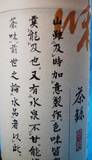 茶録
山雖及時加意製作色味皆
莫能及也又有水泉不甘能
茶味前世之論水品者以此